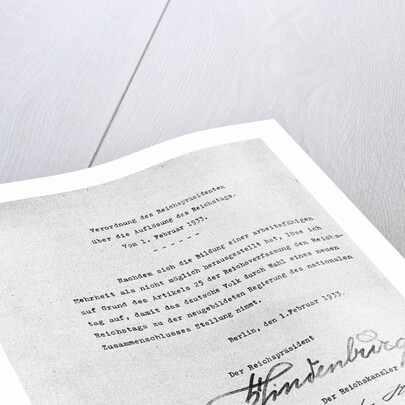 Verordnung des Reichspräsidenten
über die Auflösung des Reichstags.
Vom 1. Februar 1933.
- - - - - -
Nachdem sich die Bildung einer arbeitsfähigen
Mehrheit als nicht möglich herausgestellt hat, löse ich
auf Grund des Artikels 25 der Reichsverfassung den Reichs-
tag auf, damit das deutsche Volk durch Wahl eines neuen
Reichstags zu der neugebildeten Regierung des nationalen
Zusammenschlusses Stellung nimmt.
Berlin, den 1.Februar 1933.
Der Reichspräsident
Hindenburg
Der Reichskanzler